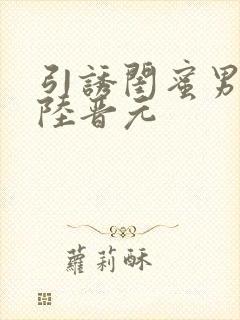 引誘閨蜜男
陸晋元
蘿莉酥